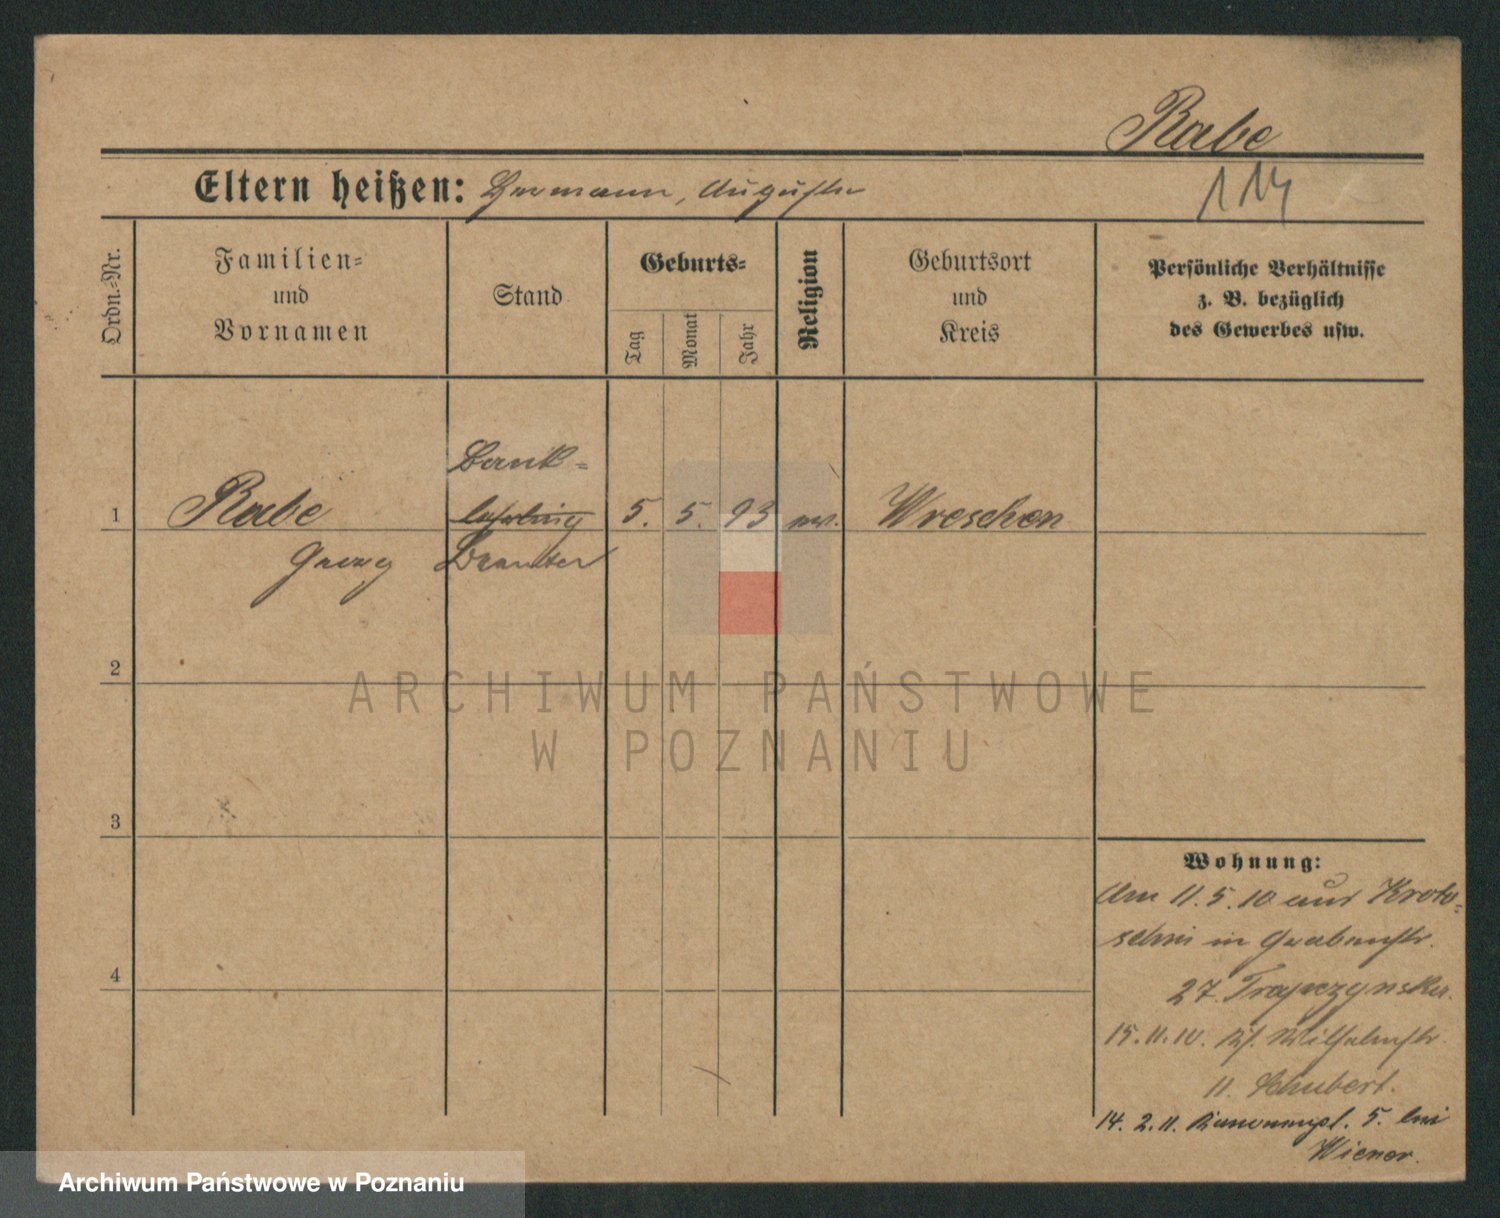 Rabe
Eltern heißen: Hermann, Auguste
114
Ordn.-Nr.
Familien-
und
Vornamen
Stand
Geburts-
Tag
Monat
Jahr
Religion
Geburtsort
und
Kreis
Persönliche Verhältnisse
z. B. bezüglich
des Gewerbes usw.
Bank-
1 Rabe lehrling 5. 5. 93 ev. Wreschen
Georg Beamter
2
3
4
Wohnung:
Am 11.5.10 aus Kroto-
schin in Grabenstr.
27. Trapczynski
15.11.10. Wilhelmstr.
11. Schubert.
14. 2. 11. 5. bei
Wiener.
ARCHIWUM PAŃSTWOWE
W POZNANIU
Archiwum Państwowe w Poznaniu